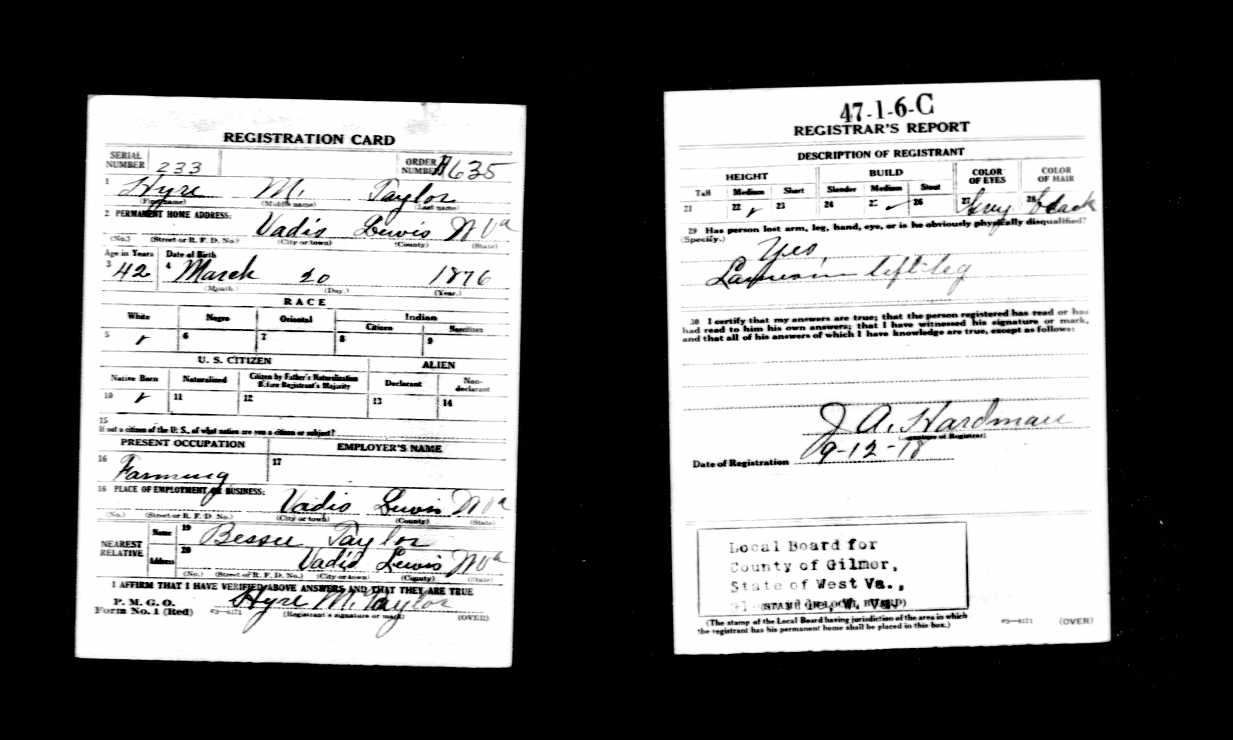 REGISTRATION CARD
SERIAL NUMBER 233 ORDER NUMBER A635
1 Hyre M. Taylor
(First name) (Middle name) (Last name)
2 PERMANENT HOME ADDRESS:
Vadis Lewis W Va
(No.) (Street or R. F. D. No.) (City or town) (County) (State)
Age in Years Date of Birth
3 42 4 March 20 1876
(Month.) (Day.) (Year.)
RACE
White Negro Oriental Indian
Citizen Noncitizen
5 6 7 8 9
U. S. CITIZEN ALIEN
Native Born Naturalized Citizen by Father's Naturalization Before Registrant's Majority Declarant Non-declarant
10 11 12 13 14
15
If not a citizen of the U. S., of what nation are you a citizen or subject?
PRESENT OCCUPATION EMPLOYER'S NAME
16 Farming 17
18 PLACE OF EMPLOYMENT OR BUSINESS:
Vadis Lewis W Va
(No.) (Street or R. F. D. No.) (City or town) (County) (State)
NEAREST RELATIVE Name 19 Bessie Taylor
Address 20 Vadis Lewis W Va
(No.) (Street or R. F. D. No.) (City or town) (County) (State)
I AFFIRM THAT I HAVE VERIFIED ABOVE ANSWERS AND THAT THEY ARE TRUE
P. M. G. O.
Form No. 1 (Red) Hyre M. Taylor
(Registrant's signature or mark) (OVER)
47-1-6-C
REGISTRAR'S REPORT
DESCRIPTION OF REGISTRANT
HEIGHT BUILD COLOR OF EYES COLOR OF HAIR
Tall Medium Short Slender Medium Stout
21 22 23 24 25 26 27 Grey 28 black
29 Has person lost arm, leg, hand, eye, or is he obviously physically disqualified?
(Specify.)
Yes
left leg
30 I certify that my answers are true; that the person registered has read or has
had read to him his own answers; that I have witnessed his signature or mark,
and that all of his answers of which I have knowledge are true, except as follows:
J A. Hardman
(Signature of Registrar)
Date of Registration 9-12-18
Local Board for
County of Gilmer,
State of West Va.,
(STAMP OF LOCAL BOARD)
(The stamp of the Local Board having jurisdiction of the area in which
the registrant has his permanent home shall be placed in this box.)
(OVER)